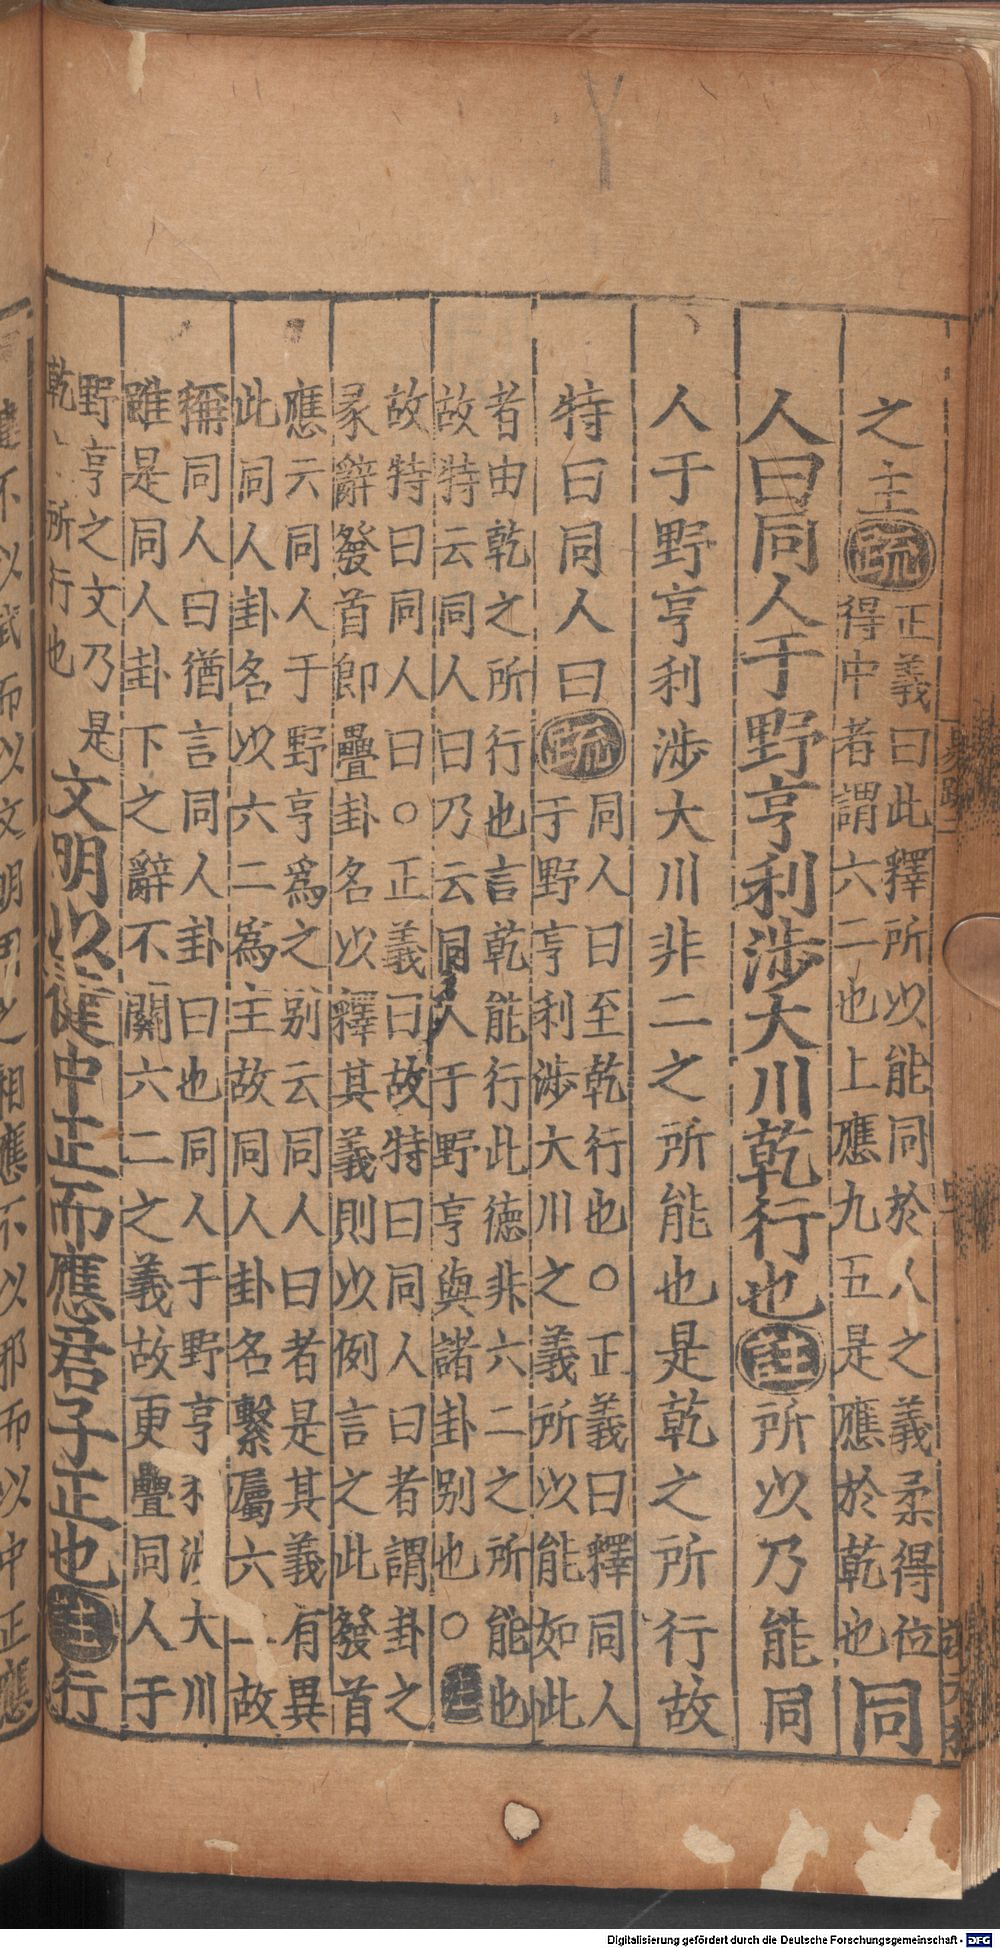 之主疏正義曰此釋所以能同於人之義柔得位
得中者謂六二也上應九五是應於乾也同
人曰同人于野亨利涉大川乾行也註所以乃能同
人于野亨利涉大川非二之所能也是乾之所行故
特曰同人曰疏同人曰至乾行也○正義曰釋同人
于野亨利涉大川之義所以能如此
者由乾之所行也言乾能行此德非六二之所能也
故特云同人曰乃云同人于野亨與諸卦別也○註
故特曰同人曰○正義曰故特曰同人曰者謂卦之
彖辭發首卽疊卦名以釋其義則以例言之此發首
應云同人于野亨爲之別云同人曰者是其義有異
此同人卦名以六二爲主故同人卦名繫屬六二故
稱同人曰猶言同人卦曰也同人于野亨利涉大川
雖是同人卦下之辭不關六二之義故更疊同人于
野亨之文乃是
乾之所行也文明以健中正而應君子正也註行
Digitalisierung gefördert durch die Deutsche Forschungsgemeinschaft - DFG